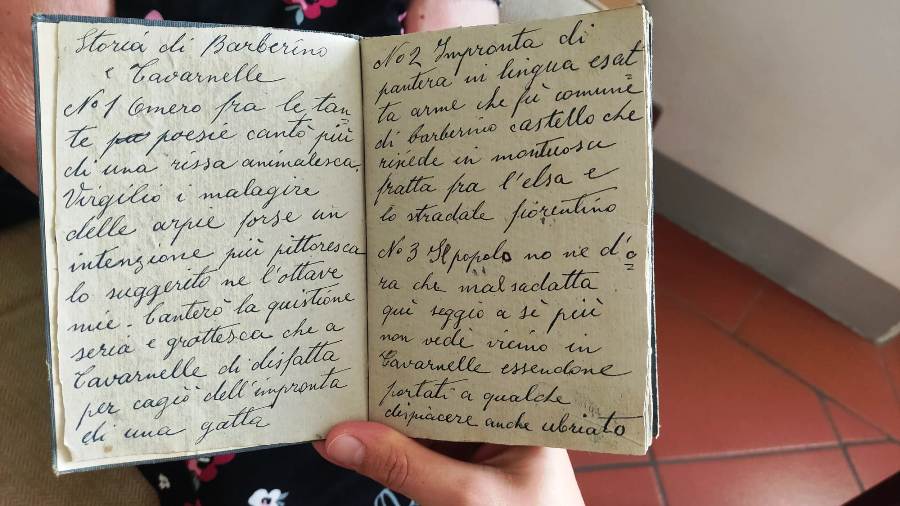 Storia di Barberino
e Tavarnelle
No 1 Omero fra le tan=
te poesie cantò più
di una rissa animalesca.
Virgilio i malagire
delle arpie forse un
intenzione più pittoresca
lo suggerito ne l'ottave
mie. Canterò la quistione
seria e grottesca che a
Tavarnelle di disfatta
per cagiò dell'impronta
di una gatta
No 2 Impronta di
pantera in lingua esat=
ta arme che fù comune
di barberino castello che
risiede in montuosa
fratta fra l'elsa e
lo stradale fiorentino
No 3 Il popolo no ne d'o=
ra che mal sadatta
qui seggio a sè più
non vedi vicino in
Tavarnelle essendone
portati a qualche
dispiacere anche ubriato